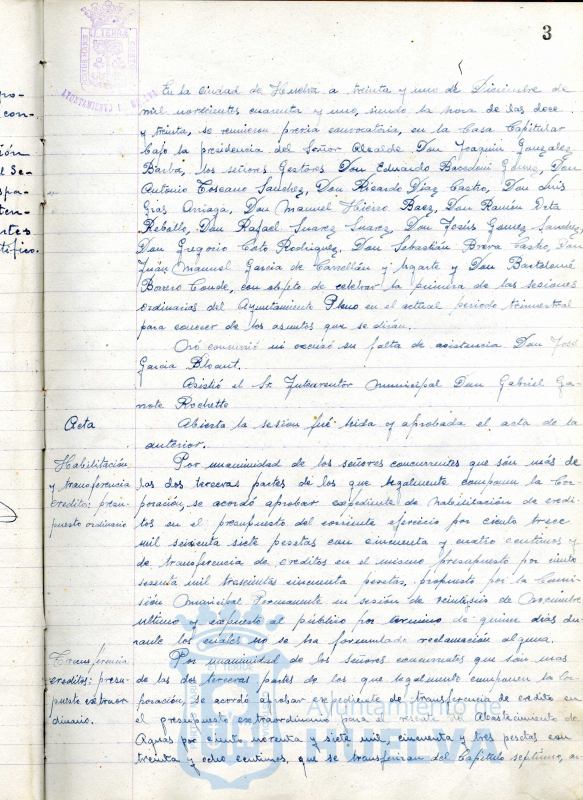 3
En la ciudad de Huelva a treinta y uno de Diciembre de
mil novecientos cuarenta y uno, siendo la hora de las doce
y treinta, se reunieron previa convocatoria, en la Casa Capitular
bajo la presidencia del Señor Alcalde Don Joaquin Gonzalez
Barba, los señores Gestores Don Eduardo Gómez, Don
Antonio Toscano Sanchez, Don Ricardo Diaz Castro, Don Luis
Grás Arriaga, Don Manuel Hierro Baez, Don Ramón
Rebollo, Don Rafael Suarez Suarez, Don Jesús Gomez Sanchez,
Don Gregorio Coto Rodriguez, Don Sebastián Don
Juán Manuel Garcia de y Ugarte y Don Bartolomé
Borero Conde, con objeto de celebrar la primera de las sesiones
ordinarias del Ayuntamiento Pleno en el actual periodo trimestral
para conocer de los asuntos que se dirán.
concurrió ni excusó su falta de asistencia Don José
Garcia
Asistió el Sr. Interventor Municipal Don Gabriel Ga-
rrote Rochette
Acta
Abierta la sesión fué leida y aprobada el acta de la
anterior.
Habilitación
y transferencia
credito: presu-
puesto ordinario
Por unanimidad de los señores concurrentes que són más de
las dos terceras partes de los que legalmente componen la Cor-
poración, se acordó aprobar expediente de habilitación de credi-
tos en el presupuesto del corriente ejercicio por ciento trece
mil seiscienta siete pesetas con cincuenta y cuatro centimos y
de transferencia de creditos en el mismo presupuesto por ciento
sesenta mil trescientas cincuenta pesetas, propuesto por la Comi-
sión Municipal Permanente en sesión de veintiseis de Noviembre
ultimo y expuesto al público por termino de quince dias du-
rante los cuales no se ha formulado reclamación alguna.
Transferencia
creditos: presu-
puesto extraor
dinario.
Por unanimidad de los señores concurrentes que son mas
de las dos terceras partes de los que legalmente componen la Cor-
poración, se acordó aprobar expediente de transferencia de credito en
el presupuesto extraordinario para el rescate del Abastecimiento de
Aguas por ciento noventa y siete mil, cincuenta y tres pesetas con
treinta y ocho centimos, que se transferian del Capitulo septimo, ar-
Ayuntamiento de
HUELVA